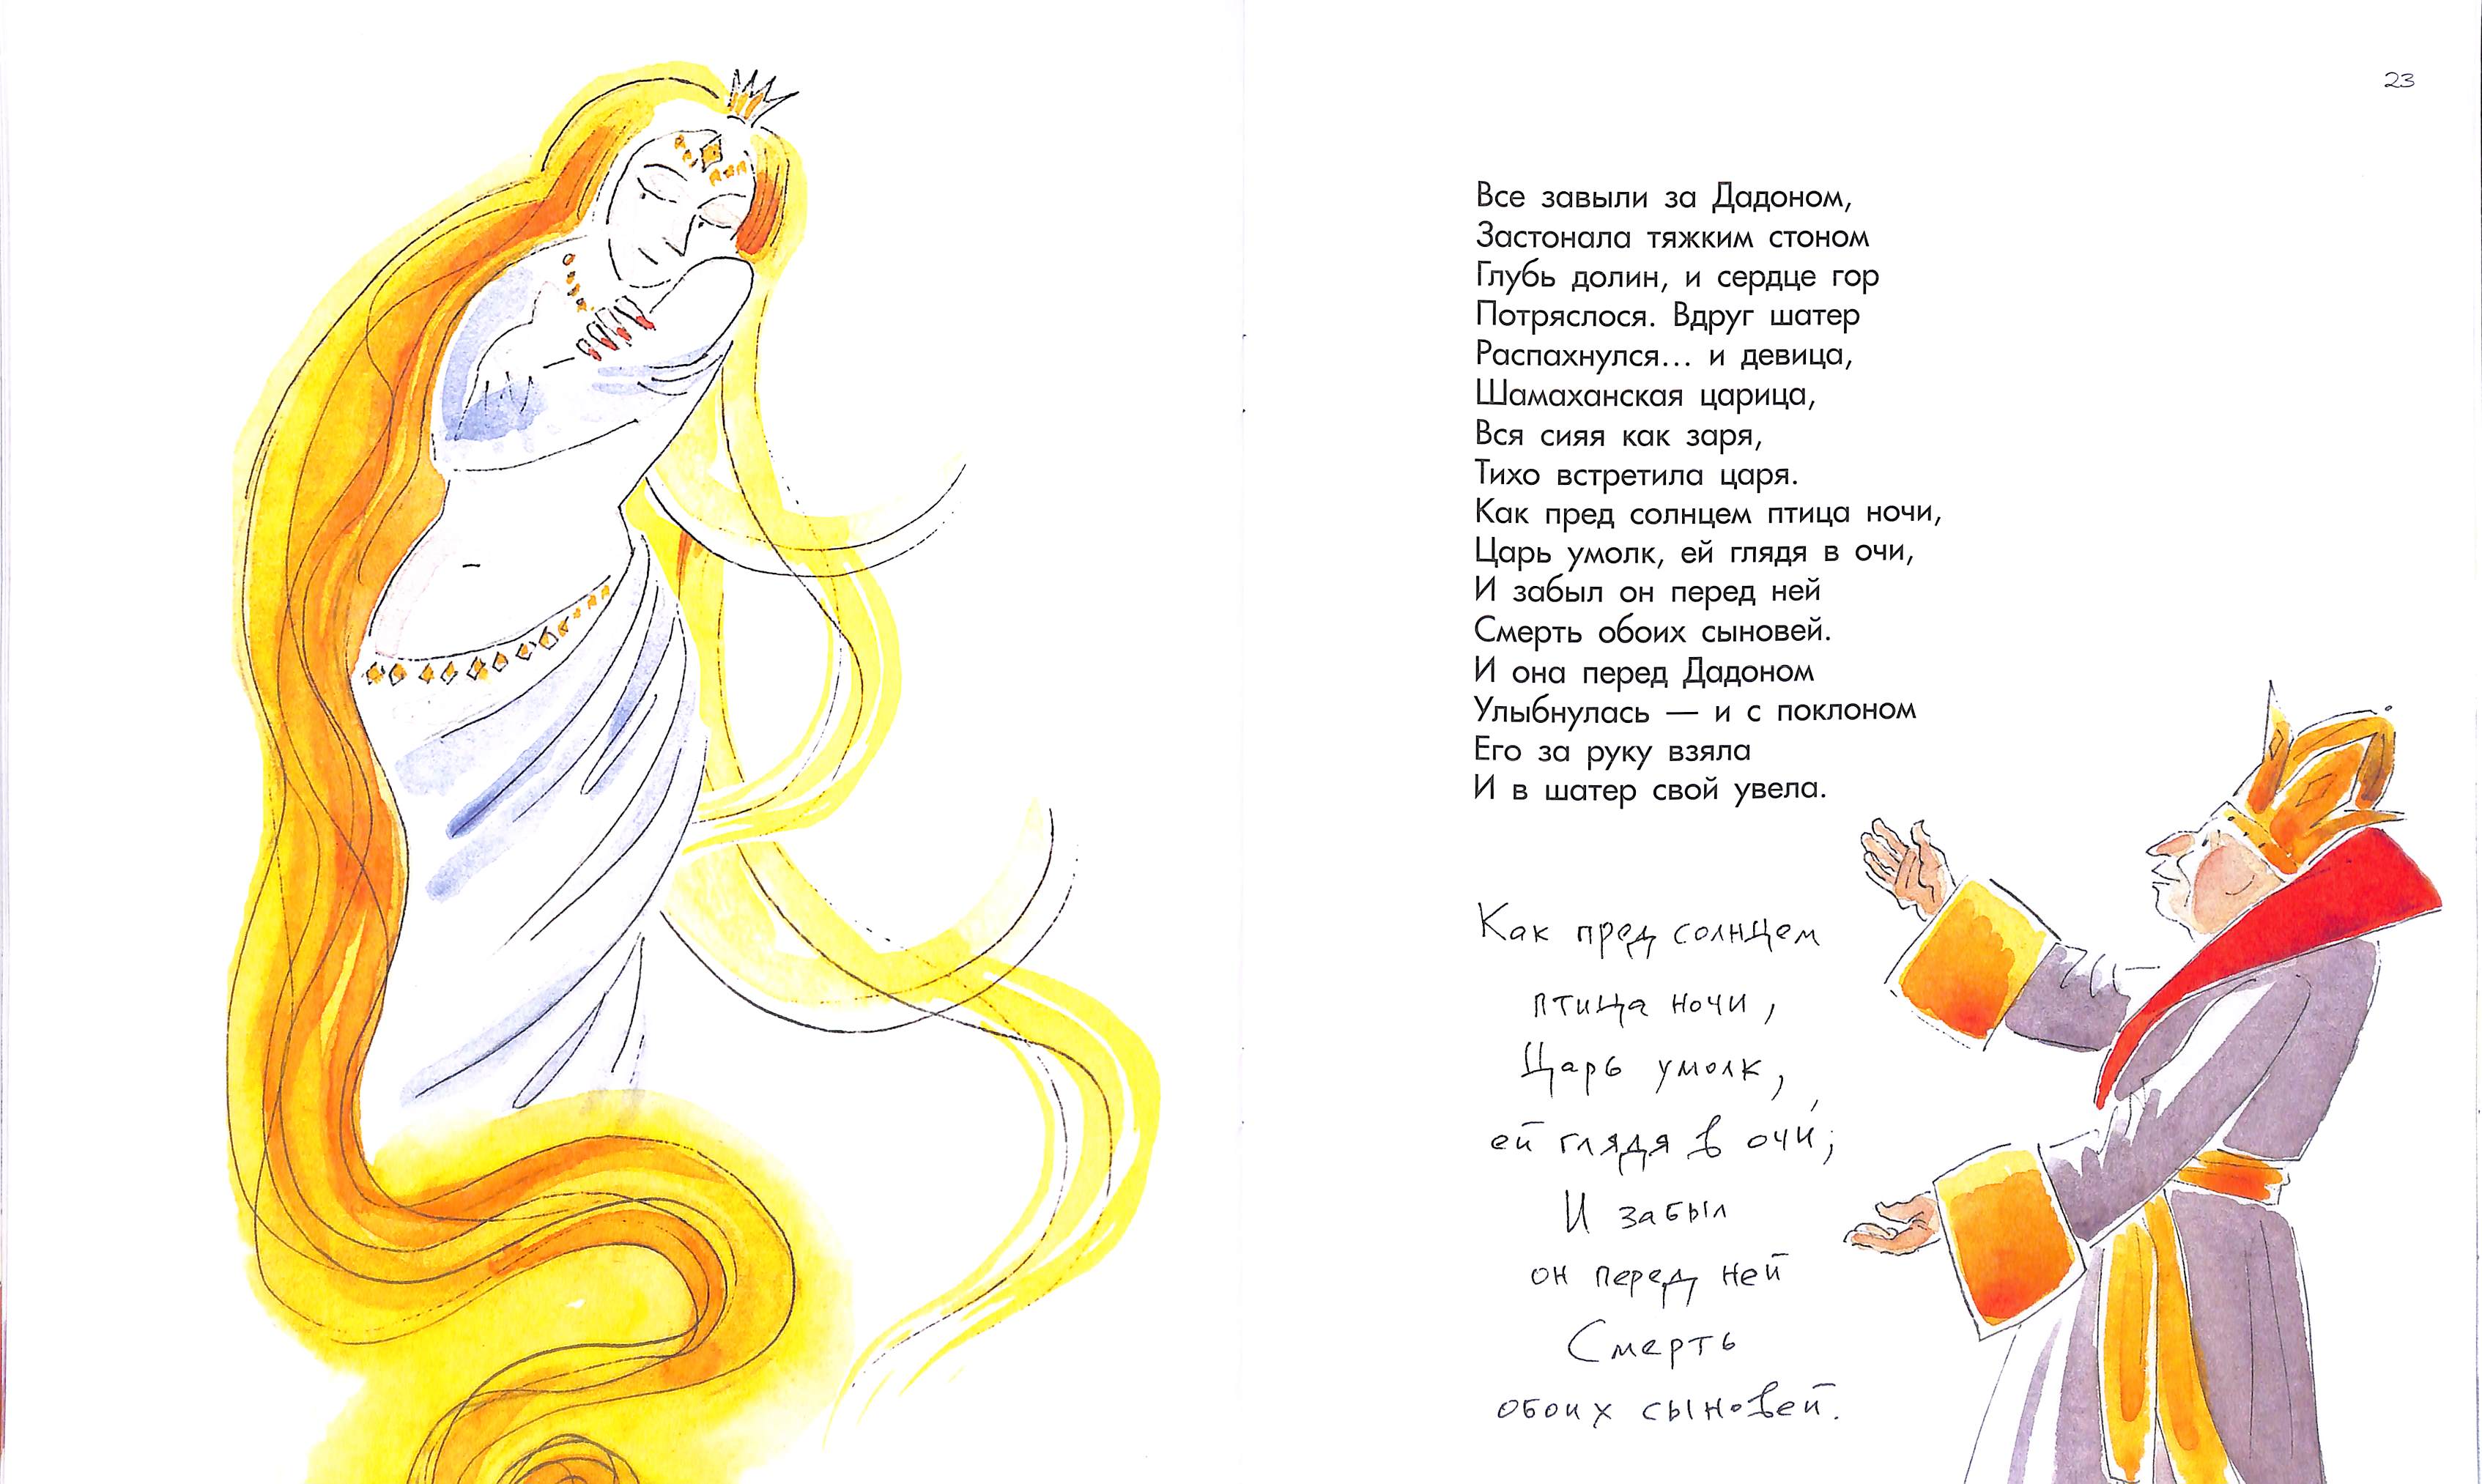 23
Все завыли за Дадоном,
Застонала тяжким стоном
Глубь долин, и сердце гор
Потряслося. Вдруг шатер
Распахнулся... и девица,
Шамаханская царица,
Вся сияя как заря,
Тихо встретила царя.
Как пред солнцем птица ночи,
Царь умолк, ей глядя в очи,
И забыл он перед ней
Смерть обоих сыновей.
И она перед Дадоном
Улыбнулась — и с поклоном
Его за руку взяла
И в шатер свой увела.
Как пред солнцем
птица ночи,
Царь умолк,
ей глядя в очи;
И забыл
он перед ней
Смерть
обоих сыновей.